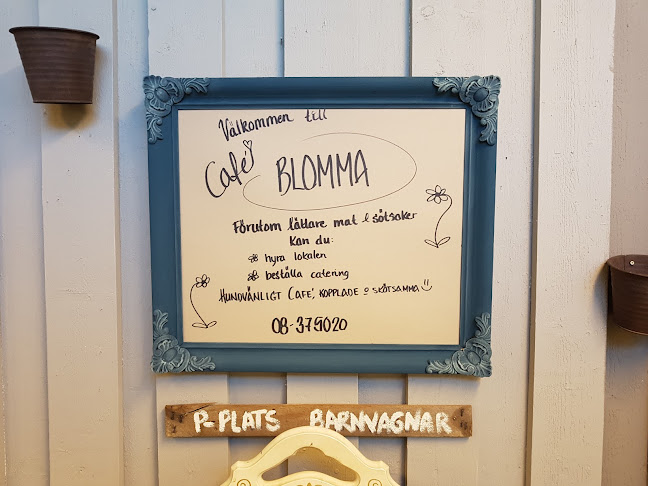 Välkommen till
Café BLOMMA
Förutom lättare mat & sötsaker
Kan du:
hyra lokalen
beställa catering
HUNDVÄNLIGT CAFÉ, KOPPLADE o SKÖTSAMMA
08-379020
P-PLATS BARNVAGNAR